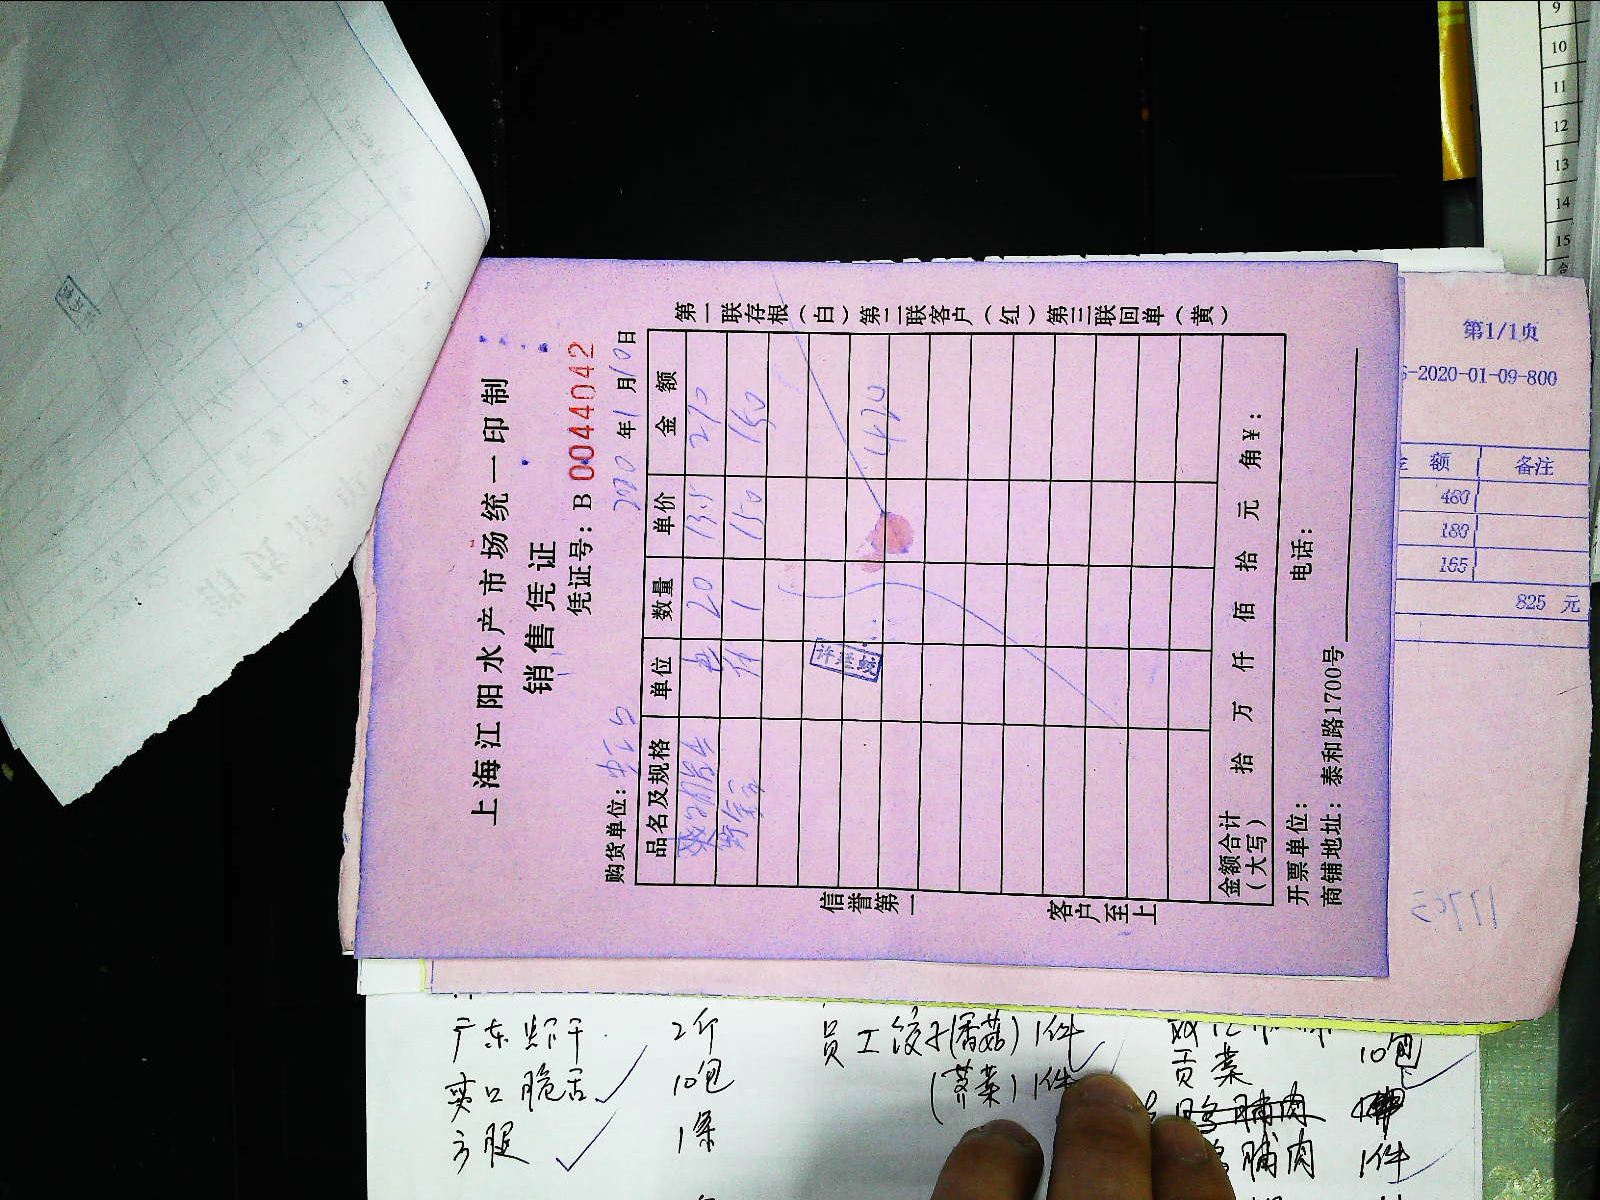 上海江阳水产市场统一印制
销售凭证
凭证号：B 0044042
购货单位：
年1月10日
品名及规格 单位 数量 单价 金额
20 13.5 270
件 1 150 150
420
许连蛟
金额合计（大写） 拾 万 仟 佰 拾 元 角 ¥：
开票单位： 电话：
商铺地址：泰和路1700号
第一联存根（白）第二联客户（红）第三联回单（黄）
信誉第一
客户至上
第1/1页
-2020-01-09-800
额 备注
480
180
165
825 元
9
10
11
12
13
14
15
广东 2斤
爽口脆舌 10包
方腿 1条
员工饺子(香菇) 1件
(荠菜) 1件
贡菜 10包
脯肉 1件